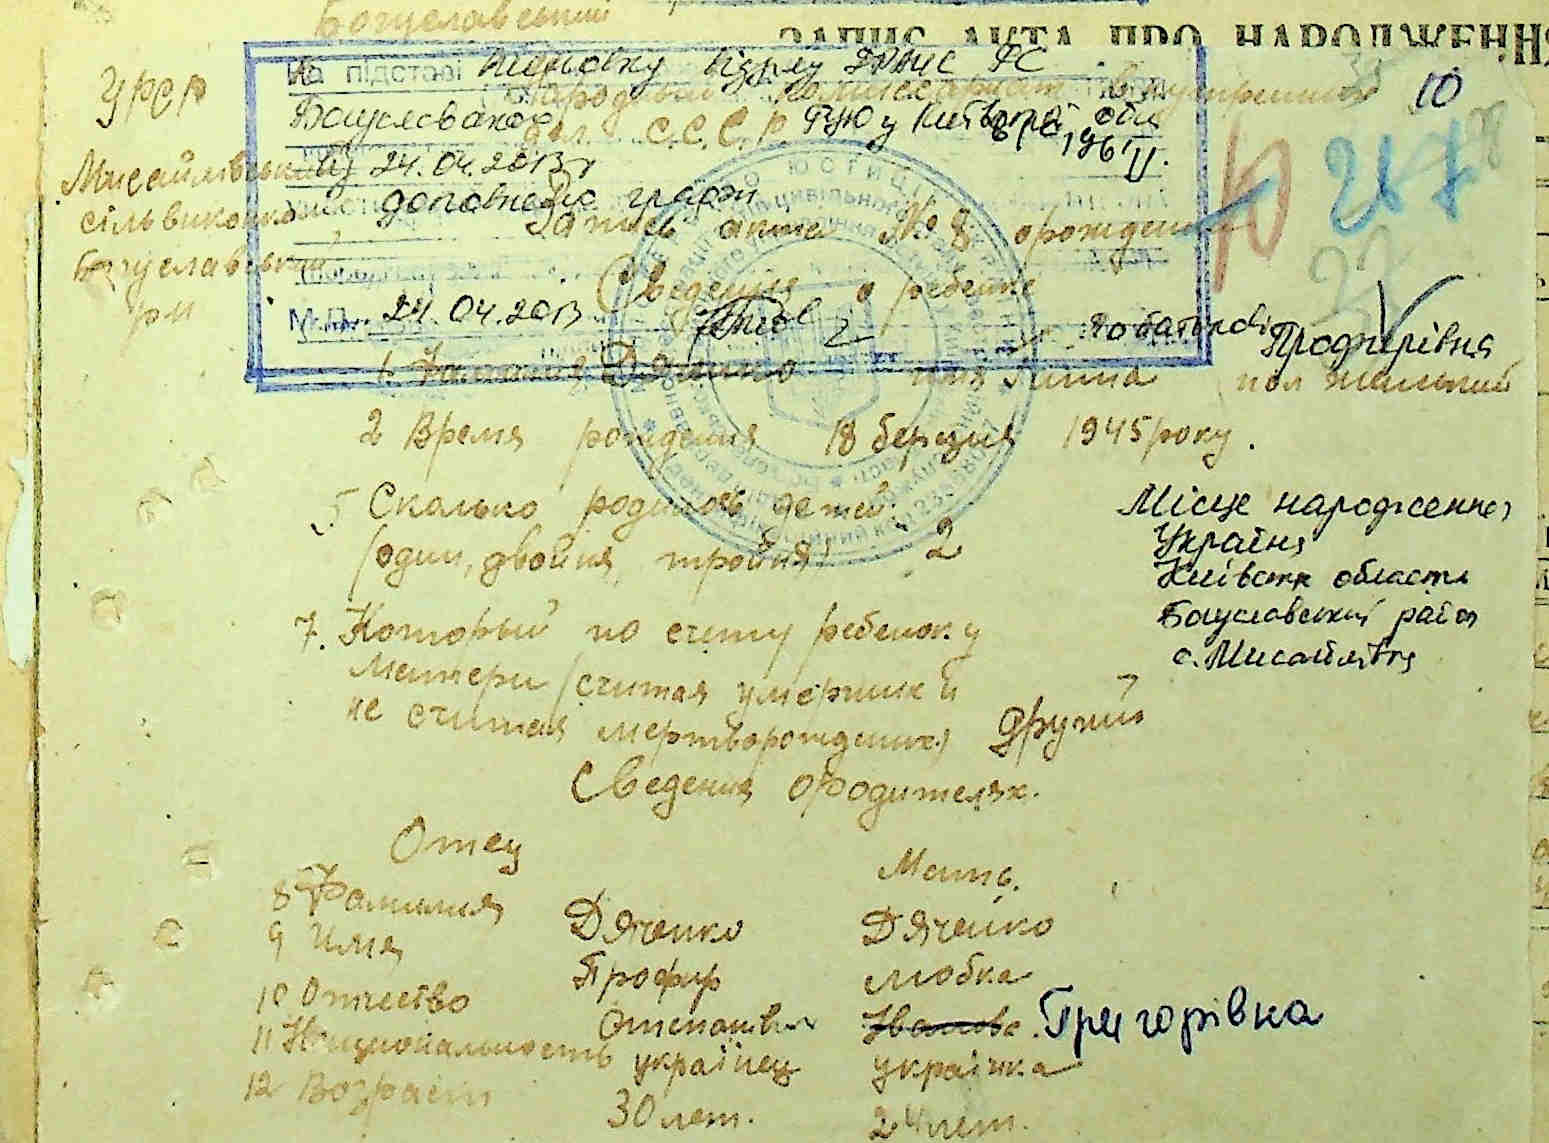 Богуславський
ЗАПИС АКТА ПРО НАРОДЖЕННЯ
УРСР
На підставі висновку відділу ДРАЦС РС
Народный комиссариат внутренних
10
Богуславського ГУЮ у Київській обл
дел С.С.С.Р.
1961
Мисайлівський
24.04.2013
217
сільвиконком
доповнено графи
Запись акта № 8 орождении
Богуславський
рн
Сведения о ребенке
М.П. 24.04.2013
по батькові Профирівна
1. Фамилия Дяченко имя Ганна пол женский
2 Время рождения 18 березня 1945 року.
5 Сколько родилось детей:
(один, двойня, тройня) 2
Місце народження
Україна
Київська область
Богуславський район
с. Мисайлівка
7. Который по счету ребенок у
матери (считая умерших и
не считая мертворожденных) другий
Сведения ородителях.
Отец
Мать.
8 Фамилия Дяченко Дяченко
9 Имя Профир Любка
10 Отчество Степанов Иванова Григорівна
11 Национальность українец українка
12 Возраст 30 лет. 24 лет.